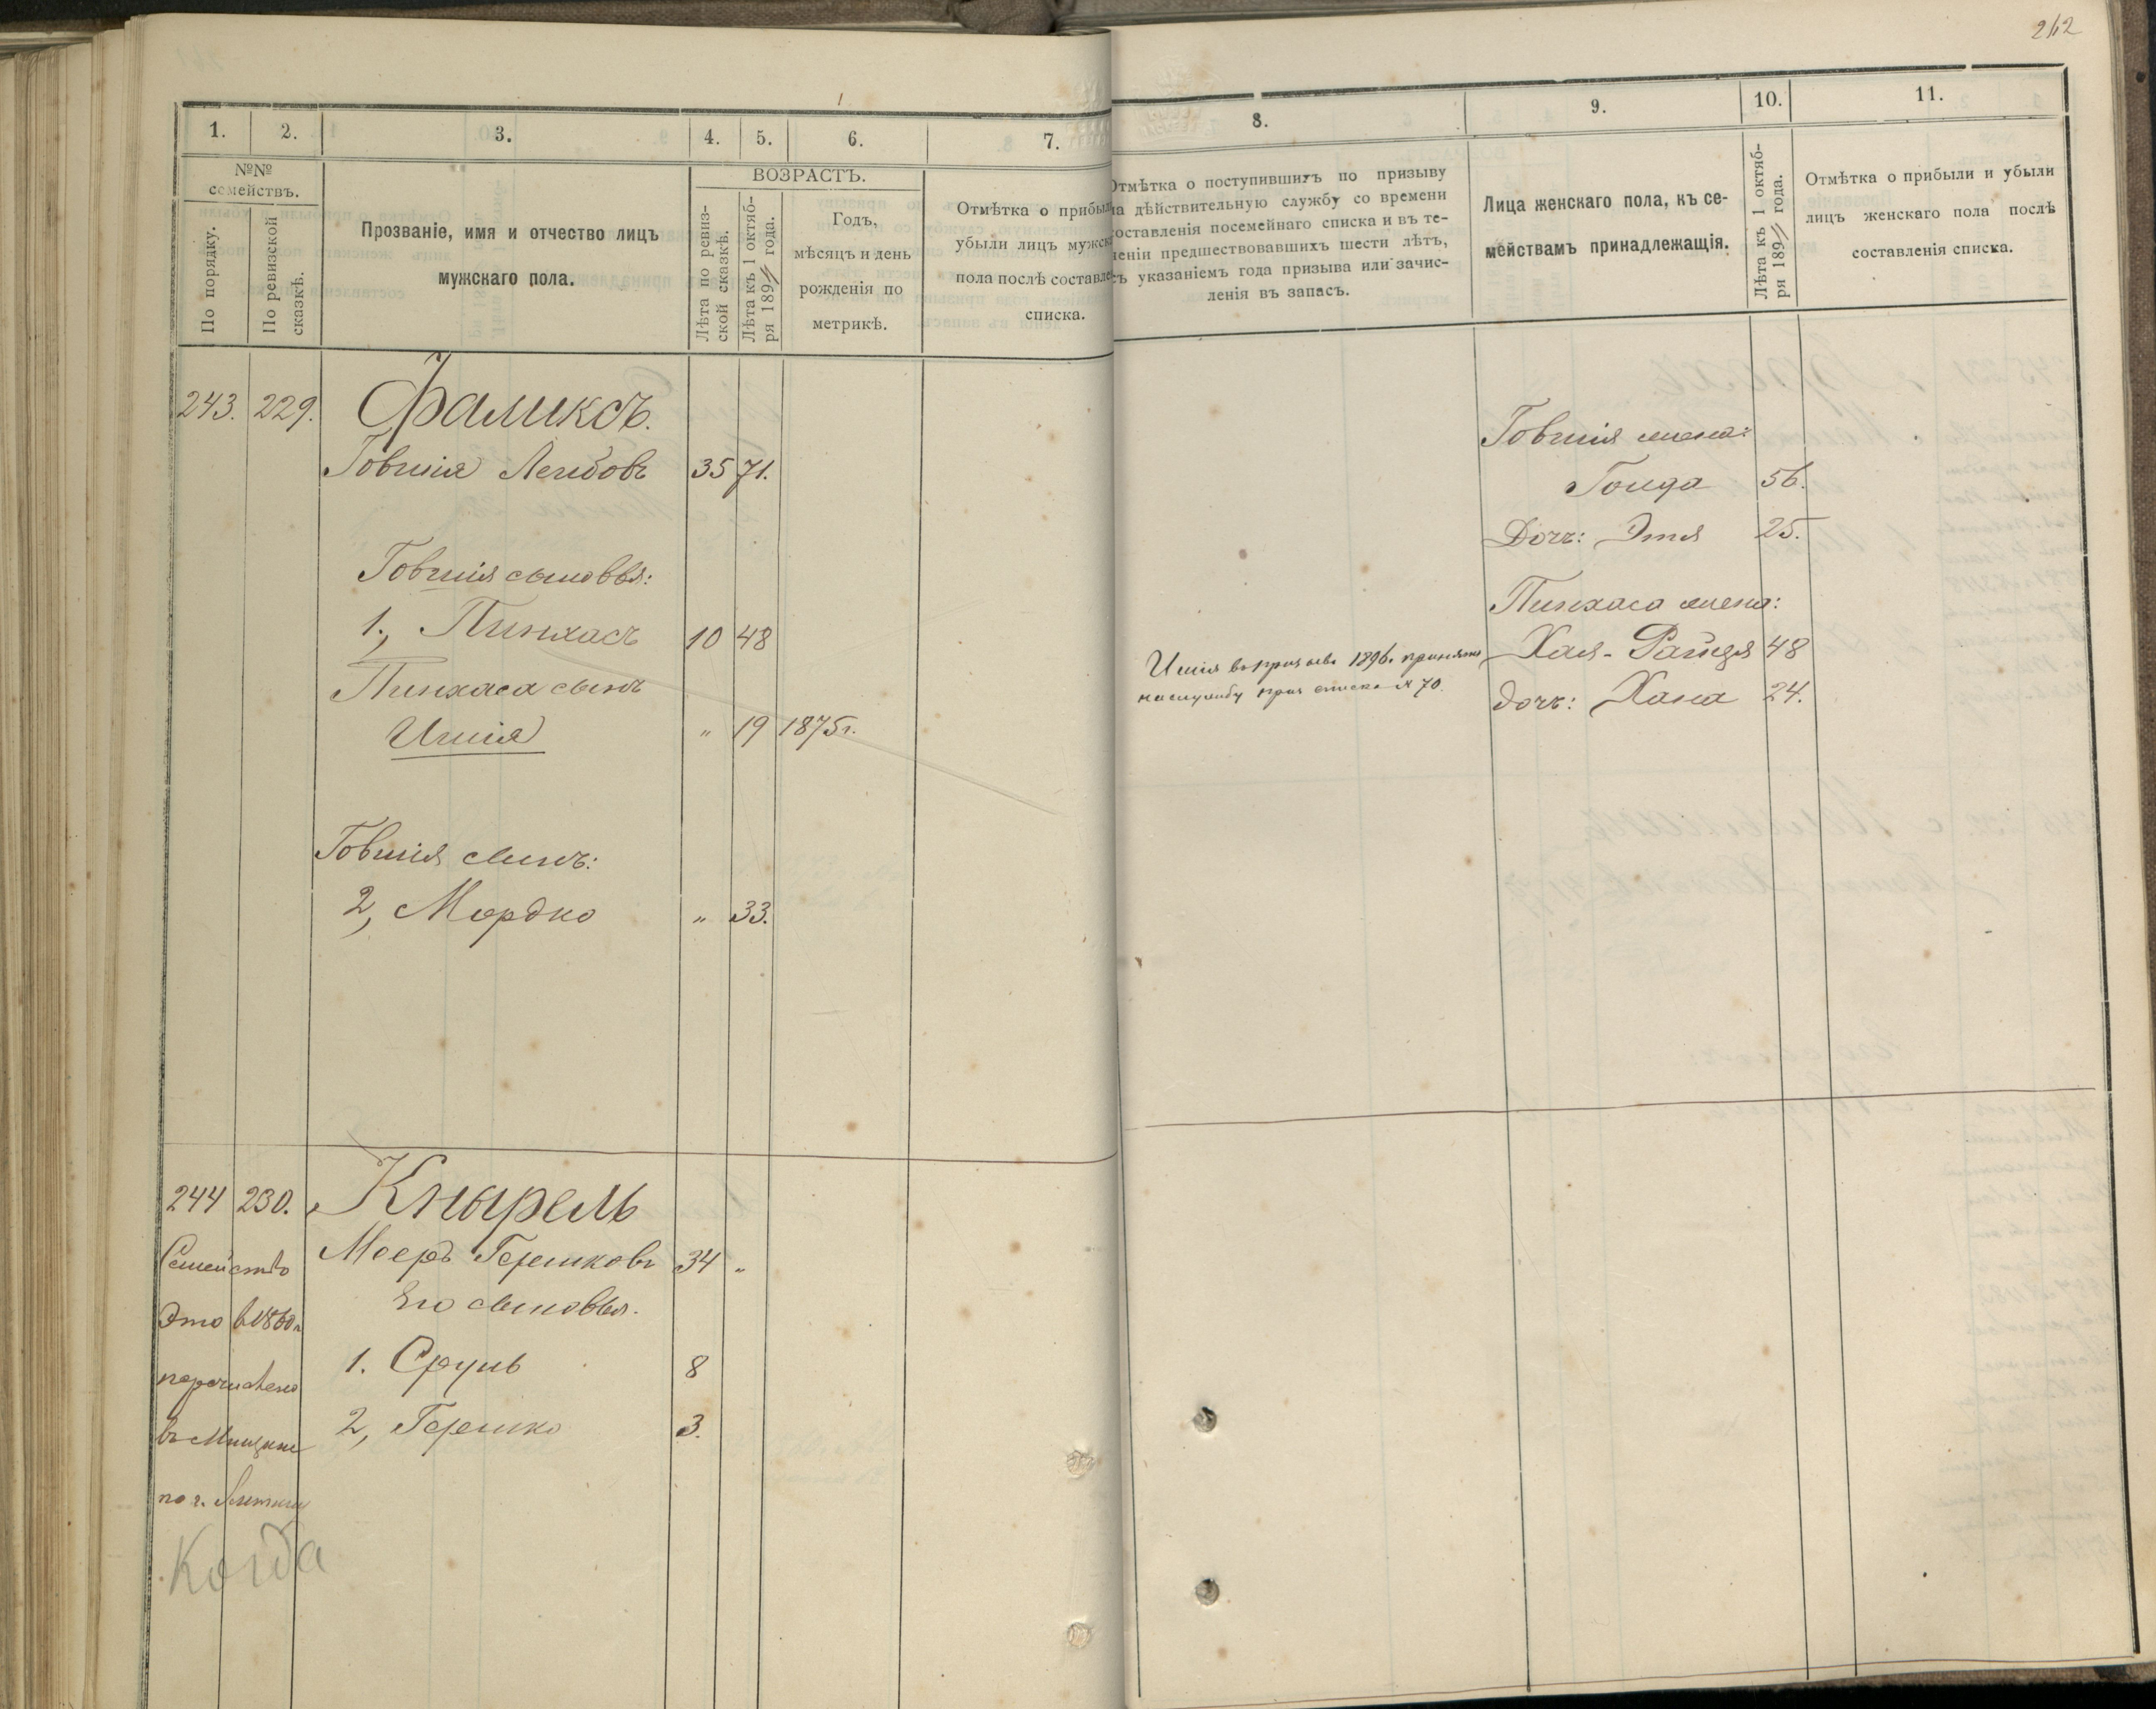 242
1. 2. 3. 4. 5. 6. 7.
№№ семействъ.
По порядку.
По ревизской сказкѣ.
Прозваніе, имя и отчество лицъ
мужскаго пола.
ВОЗРАСТЪ.
Лѣта по ревиз-
ской сказкѣ.
Лѣта къ 1 октяб-
ря 189 года.
Годъ,
мѣсяцъ и день
рожденія по
метрикѣ.
Отмѣтка о прибыли
убыли лицъ мужска
пола послѣ составле
списка.
243. 229. Фаликсъ.
Говшія Лейбовъ 35 71.
Говшія сыновья:
1., Пинхасъ 10 48
Пинхаса сынъ
Ишія " 19 1875г.
Говшія сынъ:
2, Мордко " 33.
244 230. Кнырель
Мееръ Гершковъ 34 "
Его сыновья.
1. Сруль 8
2, Гершко 3.
Семейство
Это въ 1860г
перечислено
въ Мищане
по г.
Когда
8. 9. 10. 11.
Отмѣтка о поступившихъ по призыву
на дѣйствительную службу со времени
составленія посемейнаго списка и въ те-
ченіи предшествовавшихъ шести лѣтъ,
съ указаніемъ года призыва или зачис-
ленія въ запасъ.
Лица женскаго пола, къ се-
мействамъ принадлежащія.
Лѣта къ 1 октяб-
ря 189 года.
Отмѣтка о прибыли и убыли
лицъ женскаго пола послѣ
составленія списка.
Говшія жена:
Гольда 56.
Дочь: Этя 25.
Пинхаса жена:
Хая-Райзя 48
дочь: Хана 24.
Ишія въ призывъ 1896г принятъ
на службу приз списка № 70.